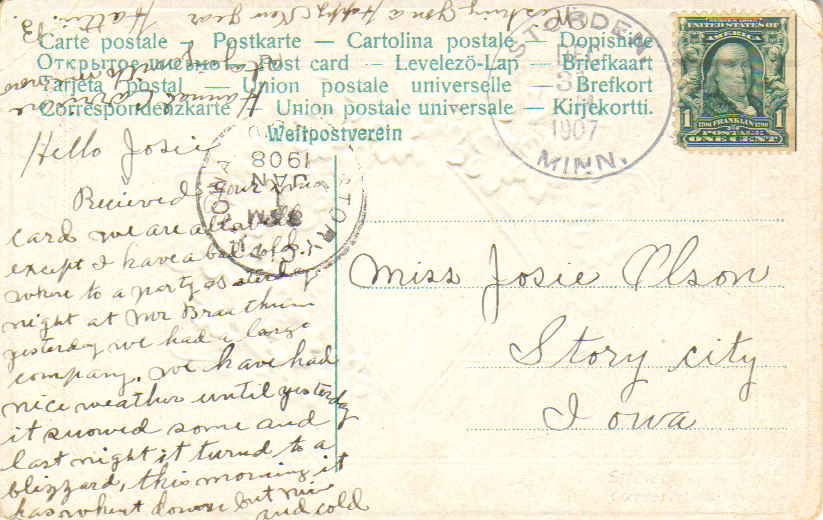 Wishing you a Happy New Year
Hattie.
Carte postale – Postkarte – Cartolina postale – Dopisnice
Открытое письмо – Post card – Levelező-Lap – Briefkaart
Tarjeta postal – Union postale universelle – Brefkort
Correspondenzkarte – Union postale universale – Kirjekortti.
Weltpostverein
STORDEN
31
1907
MINN.
UNITED STATES OF AMERICA
FRANKLIN
1 POSTAGE 1
ONE CENT
STORY CITY
JAN
1
1908
IOWA
Hello Josie
Recieved your
card we are all well
except I have a bad cold.
where to a party
night at Mr
yesterday we had a large
company. we have had
nice weather until yesterday
it snowed some and
last night it turnd to a
blizzard, this morning it
has whent down but nice
and cold
Miss Josie Olson
Story city
Iowa